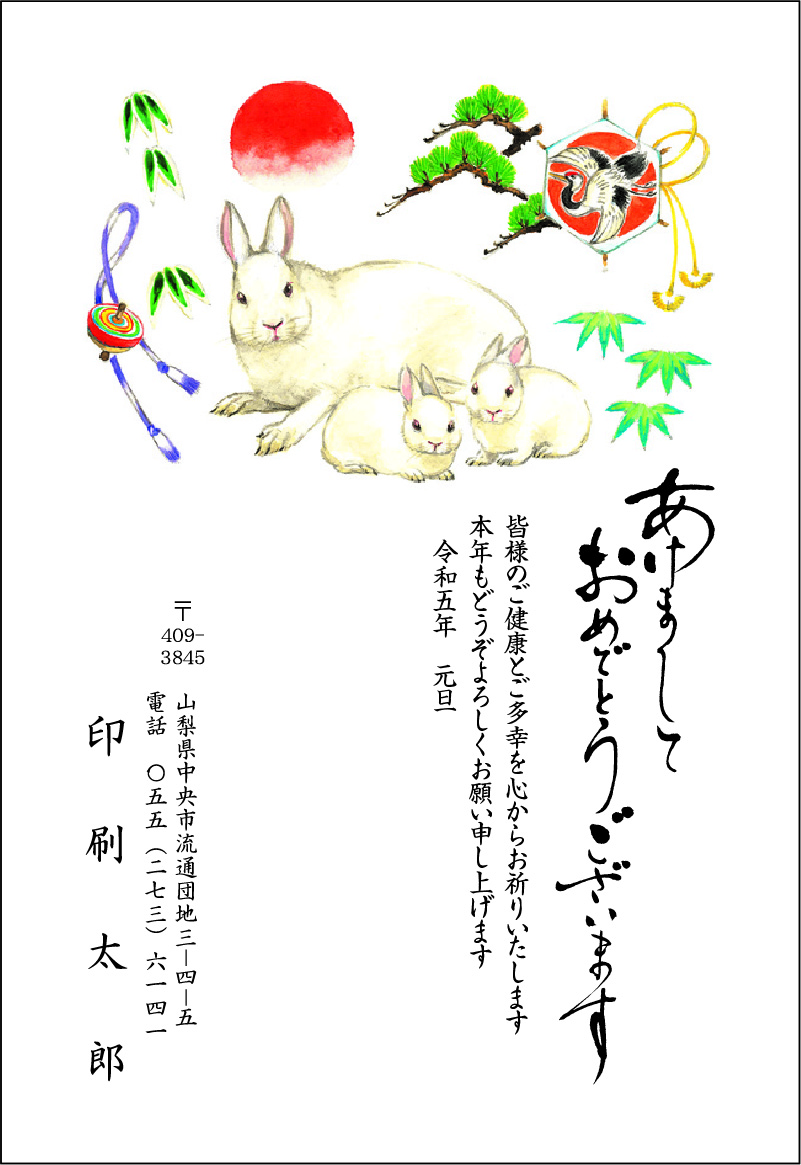 あけまして
おめでとうございます
皆様のご健康とご多幸を心からお祈りいたします
本年もどうぞよろしくお願い申し上げます
令和五年　元旦
〒
409-
3845
山梨県中央市流通団地三―四―五
電話　〇五五（二七三）六一四一
印刷太郎